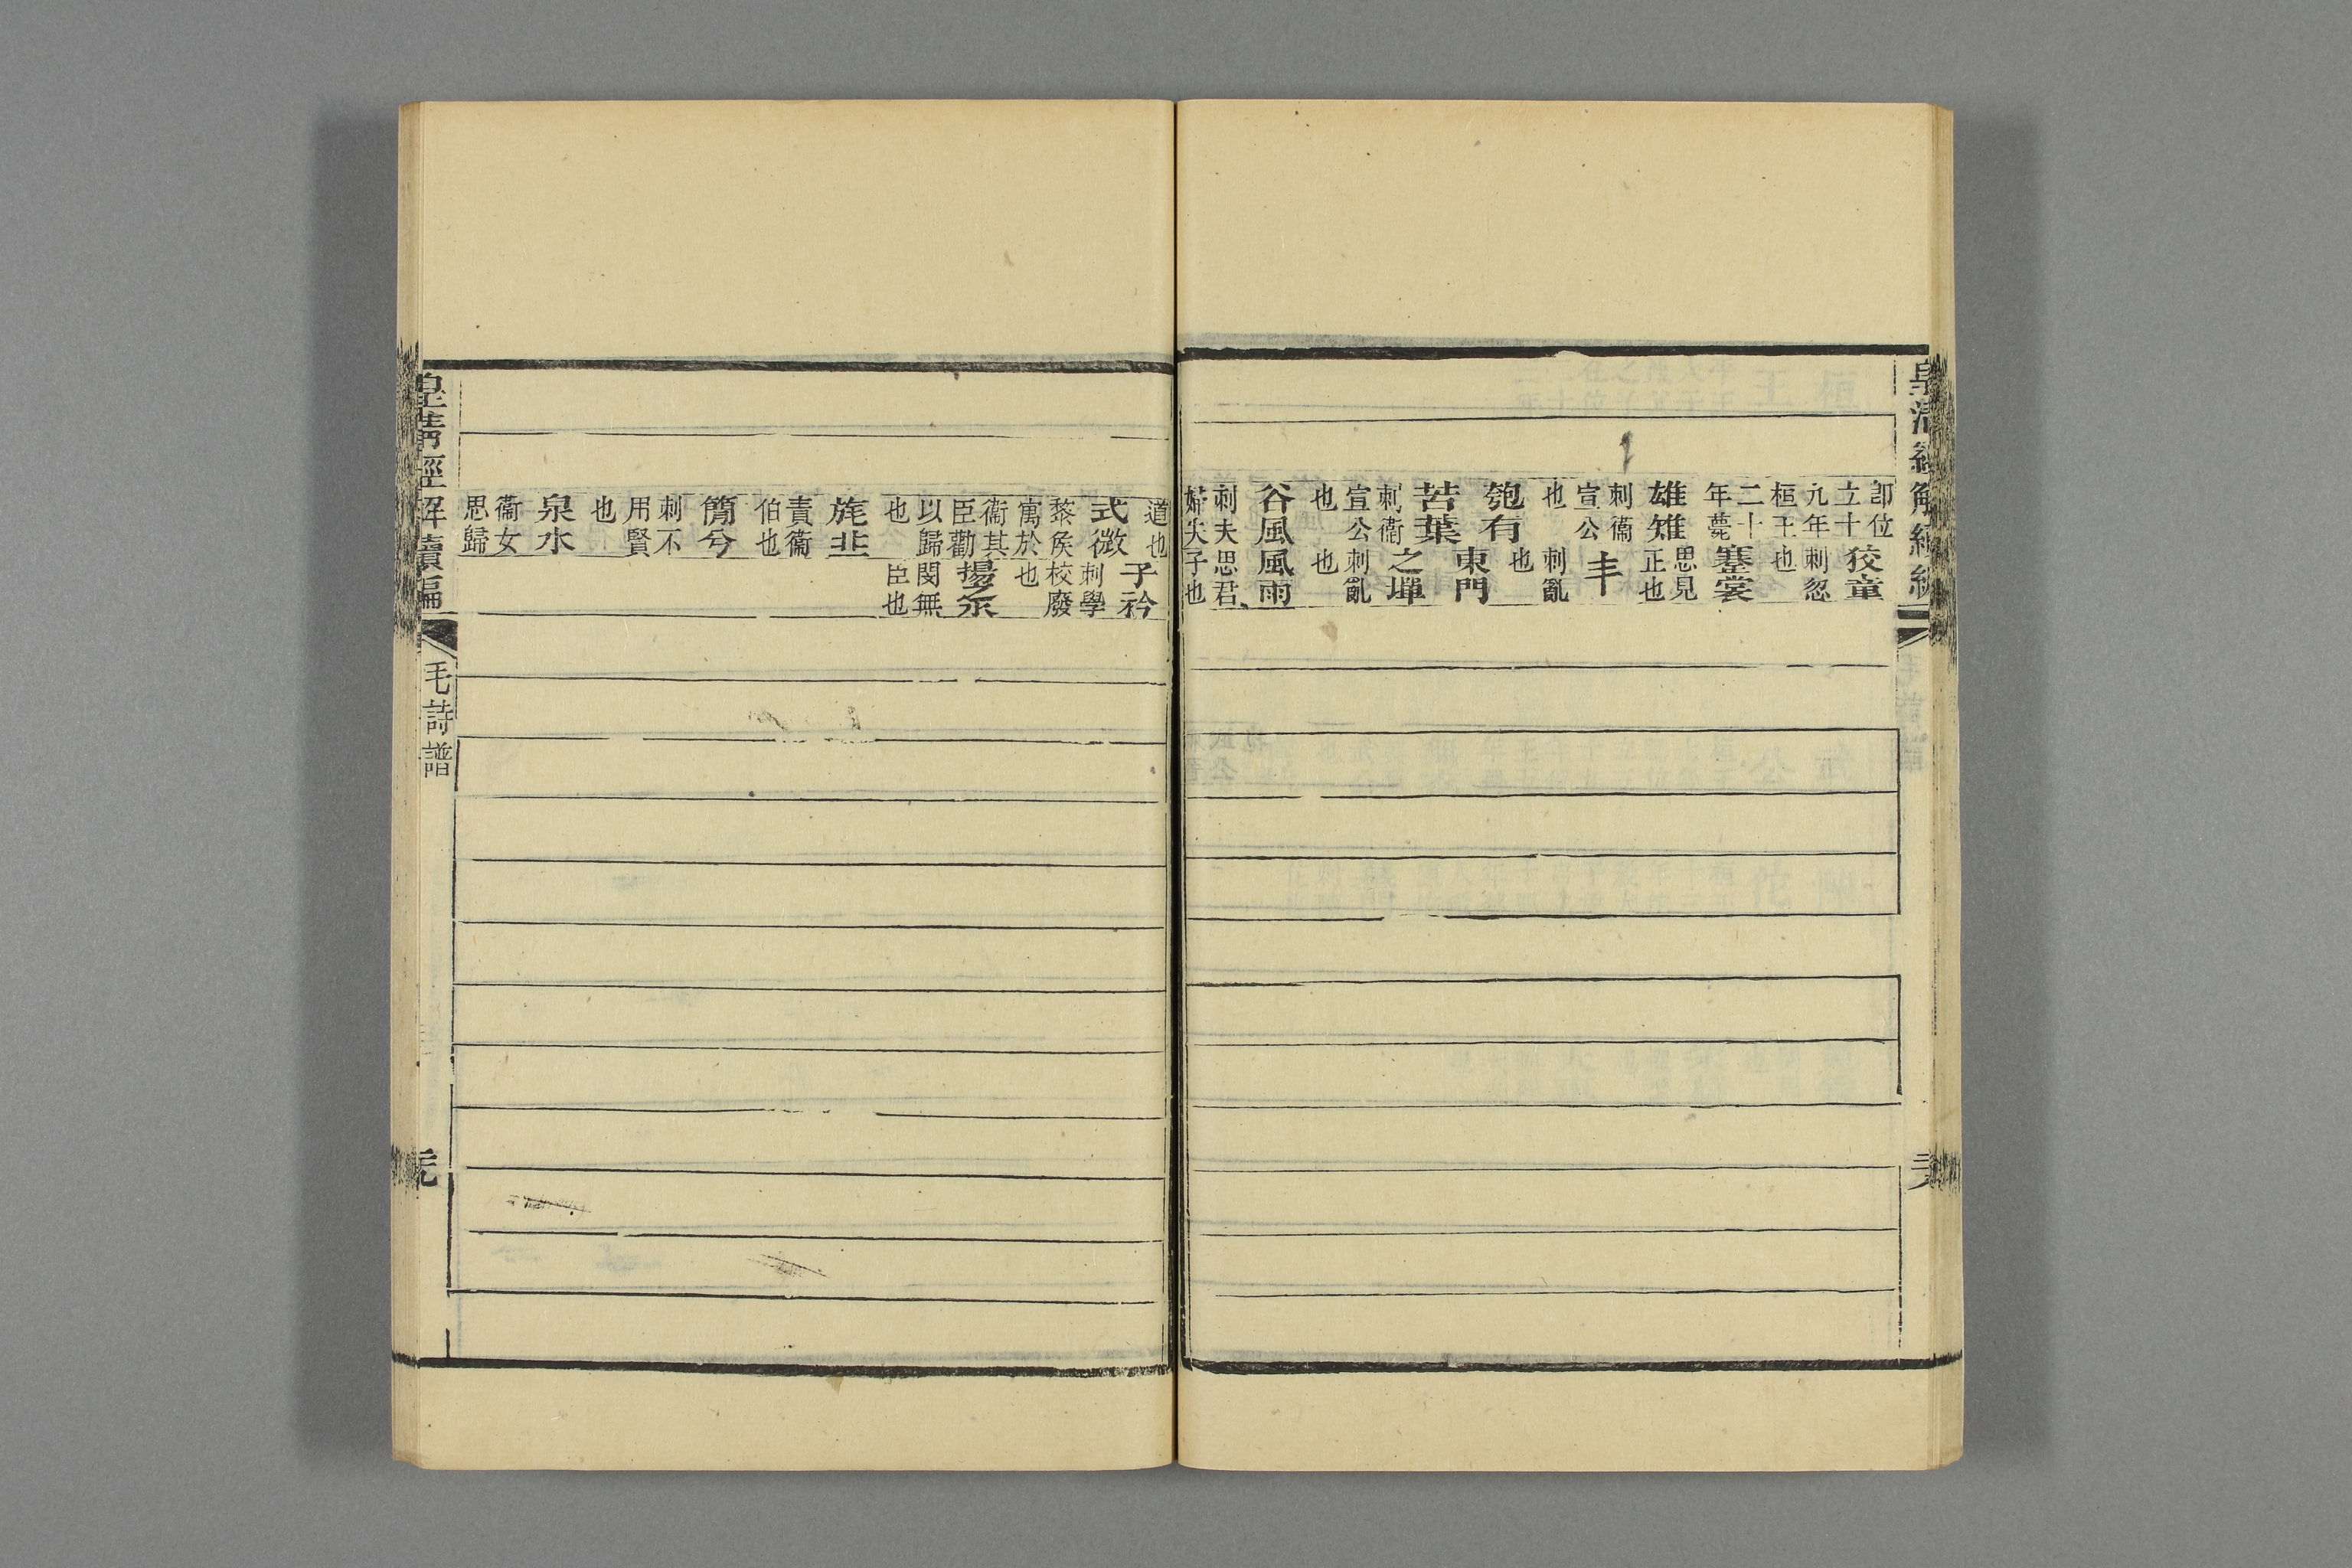 皇清經解續編
即位
立十
九年
桓王
二十
年薨
雄雉
刺衞
宣公
也
匏有
苦葉
刺衞
宣公
也
谷風
刺夫
婦失
狡童
刺忽
也
褰裳
思見
正也
丰
刺亂
也
東門
之墠
刺亂
也
風雨
思君
子也
道也
式微
黎侯
寓於
衞其
臣勸
以歸
也
旄丘
責衞
伯也
簡兮
刺不
用賢
也
泉水
衞女
思歸
子衿
刺學
校廢
也
揚之水
閔無
臣也
皇清經解續編
毛詩譜